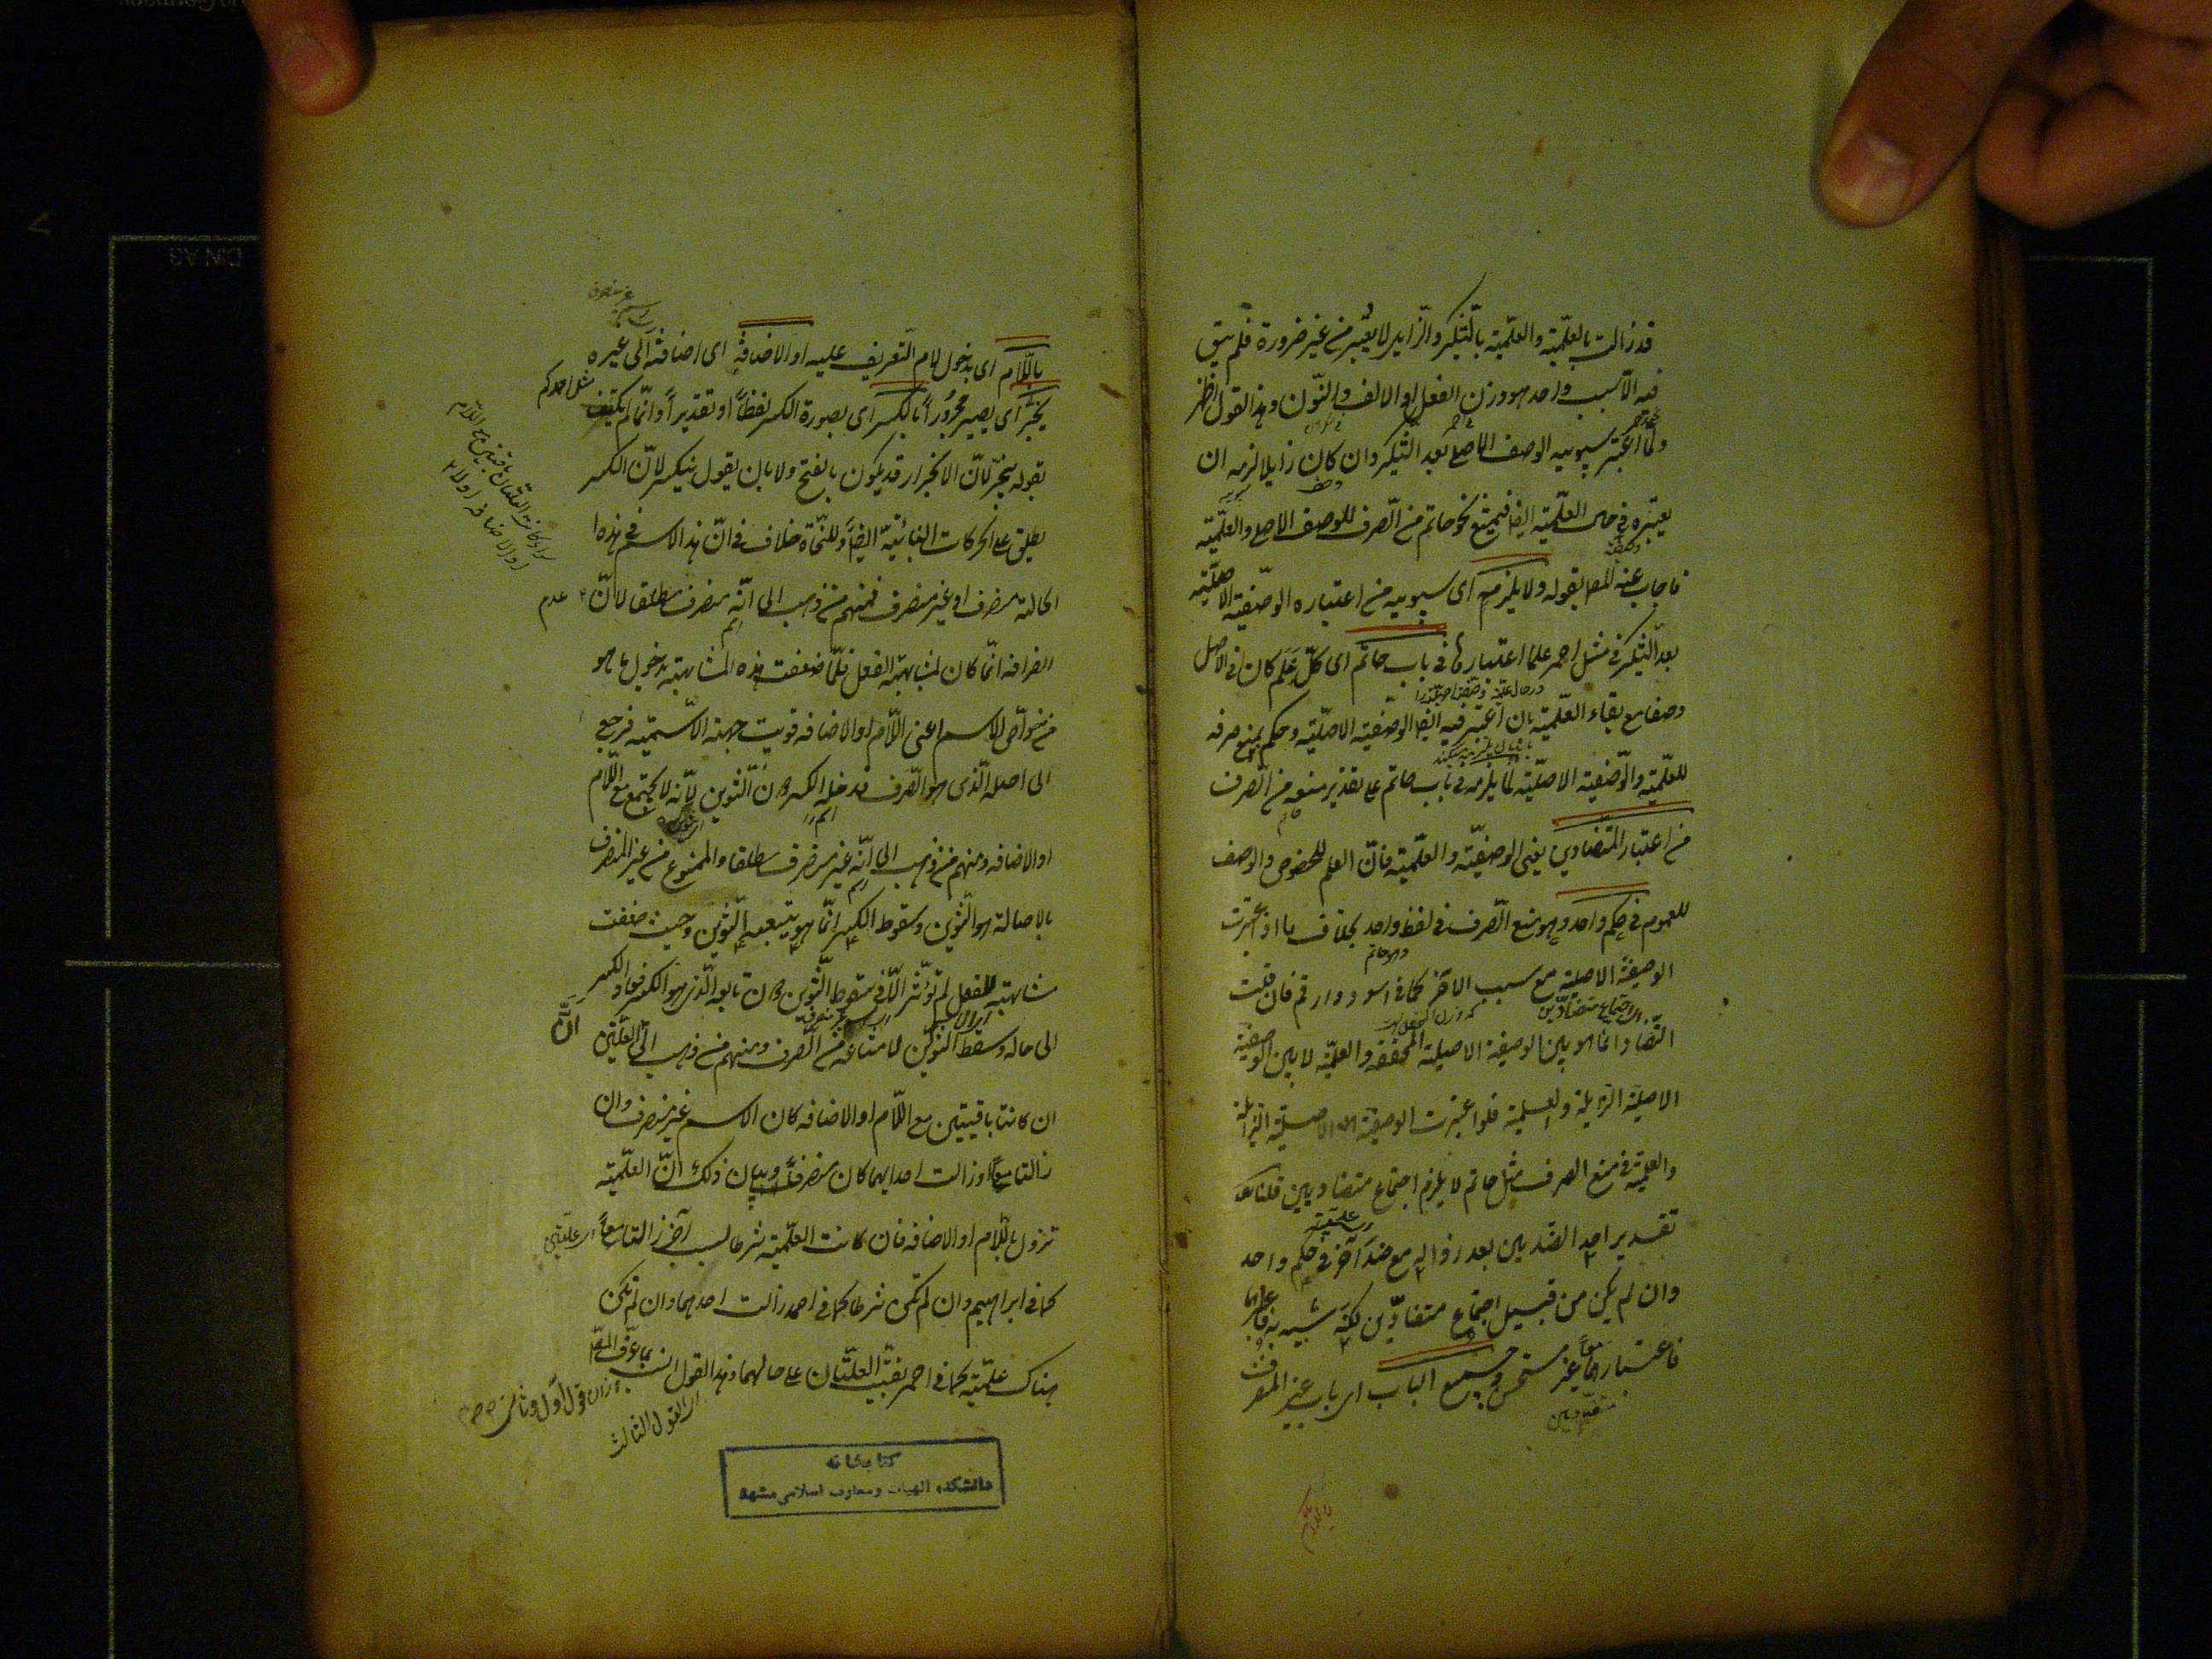 قد زالت بالعلمیّة والعلمیّة بالتنکیر والزاید لا یعتبر من غیر ضرورة فلم یبق
فیه الّا سبب واحد هو وزن الفعل او الالف والنّون وهذا القول اظهر
ولمّا اعتبر سیبویه الوصف الاصلی بعد التنکیر وان کان زایلا لزمه ان
یعتبره فی حال العلمیّة ایضا فیمتنع نحو حاتم من الصّرف للوصف الاصلی والعلمیّة
فاجاب عنه المصـ بقوله ولا یلزمه ای سیبویه من اعتباره الوصفیّة الاصلیّة
بعد التنکیر فی مثل احمر علما اعتبارها فی باب حاتم ای کلّ علم کان فی الاصل
وصفا مع بقاء العلمیّة بان اعتبر فیه ایضا الوصفیّة الاصلیّة وحکم بمنع صرفه
للعلمیّة والوصفیّة الاصلیّة لما یلزمه فی باب حاتم علی تقدیر منعه من الصّرف
من اعتبار المتضادین یعنی الوصفیّة والعلمیّة فانّ العلم للخصوص والوصف
للعموم فی حکم واحد وهو منع الصّرف فی لفظ واحد بخلاف ما اذا اعتبرت
وهو حاتم
الوصفیّة الاصلیّة مع سبب الاخر کما فی اسود وارقم فان قلت
التّضاد انما هو بین الوصفیّة الاصلیّة المحققة والعلمیّة لا بین الوصفیّة
الاصلیّة الزّایلة والعلمیّة فلو اعتبرت الوصفیّة الاصلیّة الزّایلة
والعلمیّة فی منع الصرف مثل حاتم لا یلزم اجتماع متضادین قلنا
تقدیر احد الضّدین بعد زواله مع ضد آخر فی حکم واحد
وان لم یکن من قبیل اجتماع متضادّین لکنّه شبیه به
فاعتبارهما معاً غیر مستحسن وجمیع الباب ای باب غیر المنصرف
متضادین
باللام
باللّام ای بدخول لام التّعریف علیه او الاضافة ای اضافته الی غیره
ینجرّ ای یصیر مجروراً بالکسر ای بصورة الکسر لفظاً او تقدیراً وانّما لم یکتف
بقوله ینجرّ لانّ الانجرار قد یکون بالفتح ولا بان یقول ینکسر لانّ الکسر
یطلق علی الحرکات البنائیّة ایضاً وللنّحاة خلاف فی انّ هذا الاسم فی هذه
الحالة منصرف او غیر منصرف فمنهم من ذهب الی انّه منصرف مطلقا لانّ عدم
انصرافه انّما کان لمشابهته الفعل فلمّا ضعفت هذه المشابهة بدخول ما هو
من خواصّ الاسم اعنی اللّام او الاضافه قویت جهة الاسمیّة فرجع
الی اصله الّذی هو الصّرف فدخله الکسر دون التّنوین لانّه لا یجتمع مع اللّام
او الاضافه ومنهم من ذهب الی انّه غیر منصرف مطلقا والممنوع من غیر المنصرف
بالاصالة هو التّنوین وسقوط الکسر انّما هو بتبعیه التّنوین وحیث ضعفت
مشابهته للفعل لم تؤثر الّا فی سقوط التّنوین دون تابعه الّذی هو الکسر فعاد الکسر
الی حاله وسقط التنوین لامتناعه من الصّرف ومنهم من ذهب الی انّ العلّتین
ان کانتا باقیتین مع اللّام او الاضافه کان الاسم غیر منصرف وان
زالتا معاً او زالت احدیهما کان منصرفاً وبیان ذلک انّ العلمیّة
تزول باللّام او الاضافه فان کانت العلمیّة شرطا لسبب آخر زالتا معاً
کما فی ابراهیم وان لم تکن شرطا کما فی احمد زالت احدیهما وان لم تکن
هناک علمیّة کما فی احمر بقیت العلّتان علی حالهما وهذا القول انسب بما عرّف المصـ
ای القول الثالث
کتابخانه
دانشکده الهیات ومعارف اسلامی مشهد